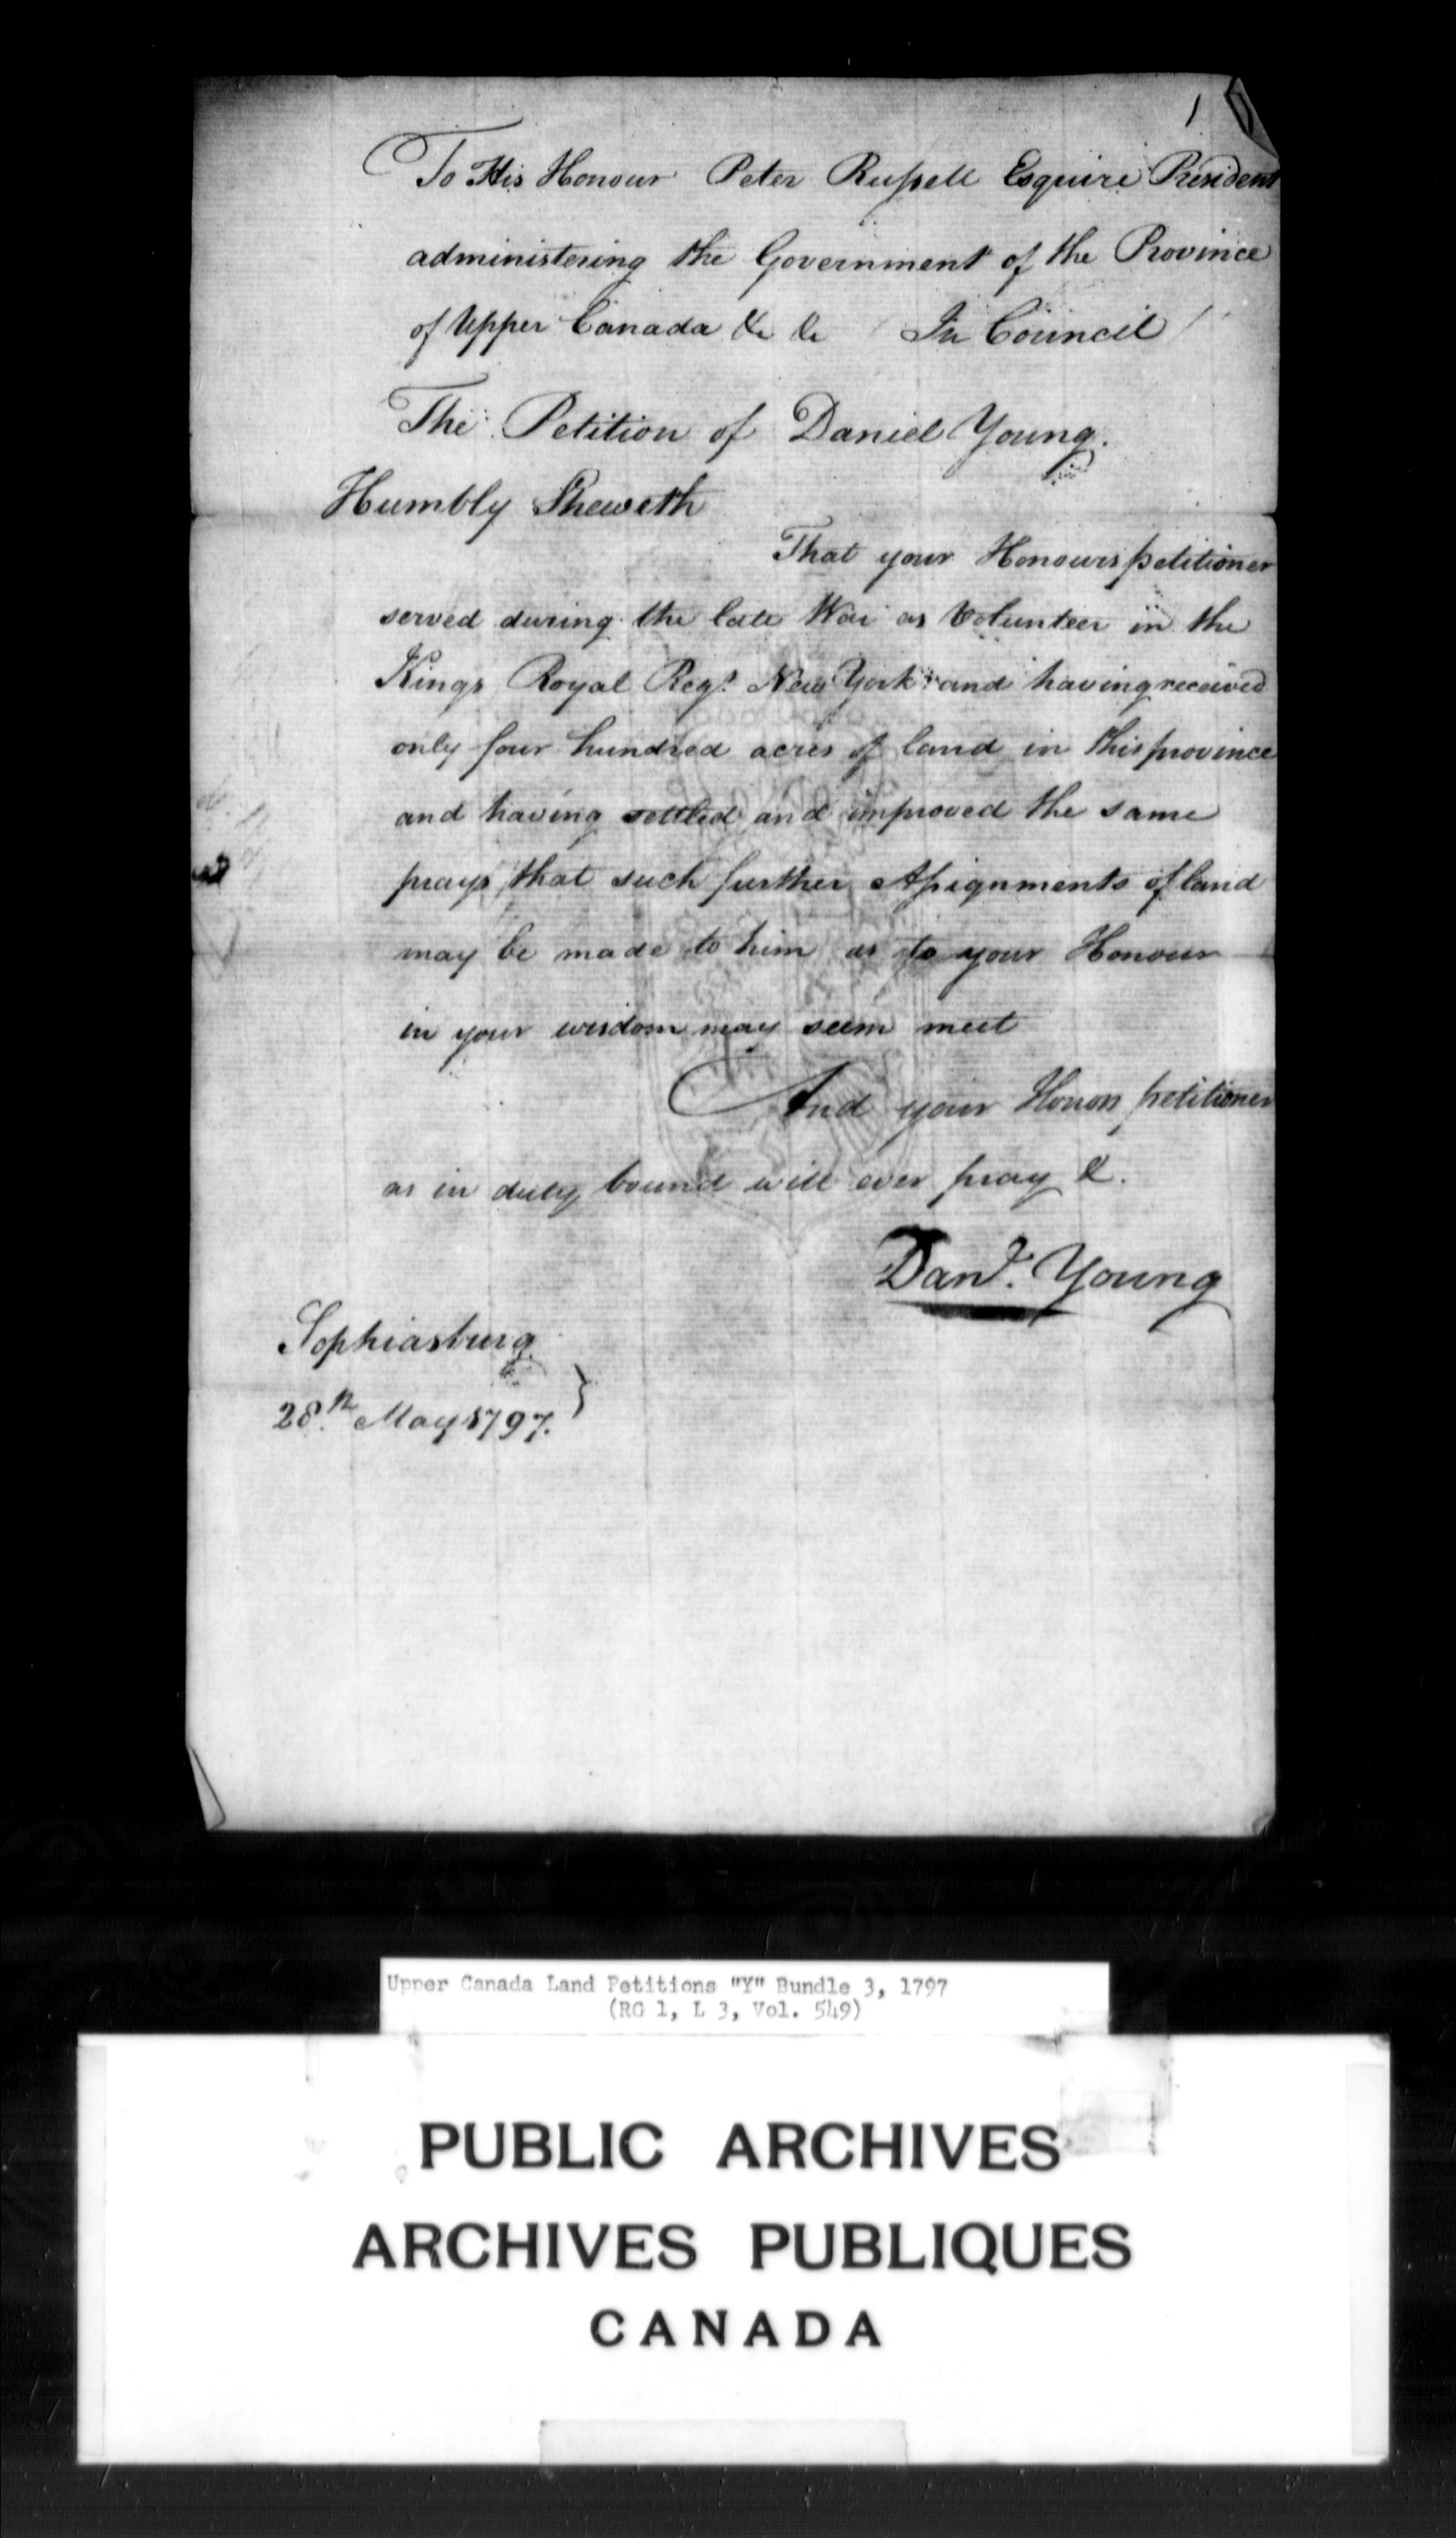 1
To His Honour Peter Russell Esquire President
administering the Government of the Province
of Upper Canada &c &c In Council
The Petition of Daniel Young.
Humbly Sheweth
That your Honours petitioner
served during the late War as Volunteer in the
Kings Royal Regt. New York and having received
only four hundred acres of land in this province
and having settled and improved the same
prays that such further Assignments of land
may be made to him as to your Honour
in your wisdom may seem meet
And your Honors petitioner
as in duty bound will ever pray &.
Danl. Young
Sophiasburg
28.th May 1797. }
Upper Canada Land Petitions "Y" Bundle 3, 1797
(RG 1, L 3, Vol. 549)
PUBLIC ARCHIVES
ARCHIVES PUBLIQUES
CANADA